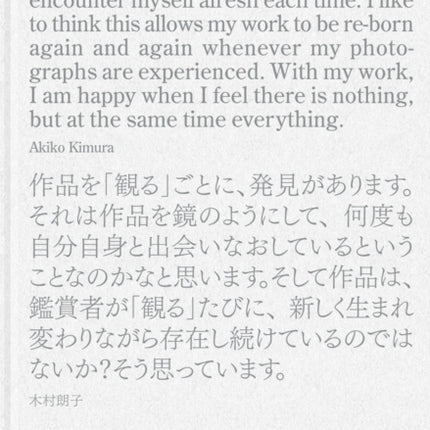 encounter myself afresh each time. I like
to think this allows my work to be re-born
again and again whenever my photo-
graphs are experienced. With my work,
I am happy when I feel there is nothing,
but at the same time everything.
Akiko Kimura
作品を「観る」ごとに、発見があります。
それは作品を鏡のようにして、何度も
自分自身と出会いなおしているという
ことなのかなと思います。そして作品は、
鑑賞者が「観る」たびに、新しく生まれ
変わりながら存在し続けているのでは
ないか?そう思っています。
木村朗子